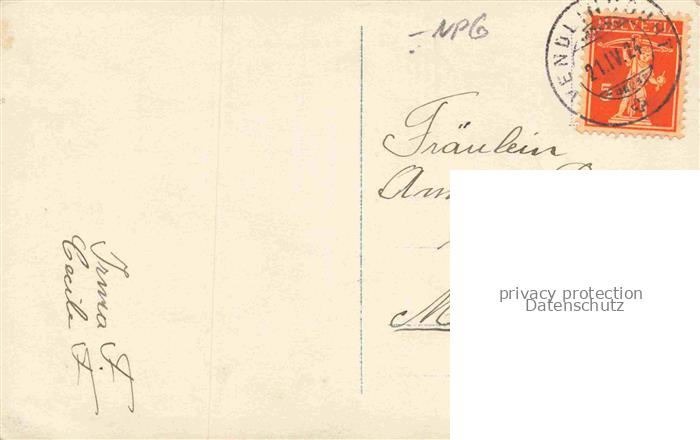 NPG
21.IV.24
HELVETIA
Fräulein
privacy protection
Datenschutz
Irma F.
Cecile F.